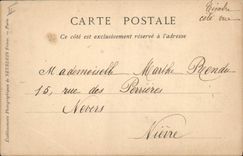 CARTE POSTALE
Ce côté est exclusivement réservé à l'adresse
Mademoiselle Marthe Rondu
15, rue des Perrières
Nevers
Nièvre
Établissements Photographiques de NEURDEIN Frères. — Paris